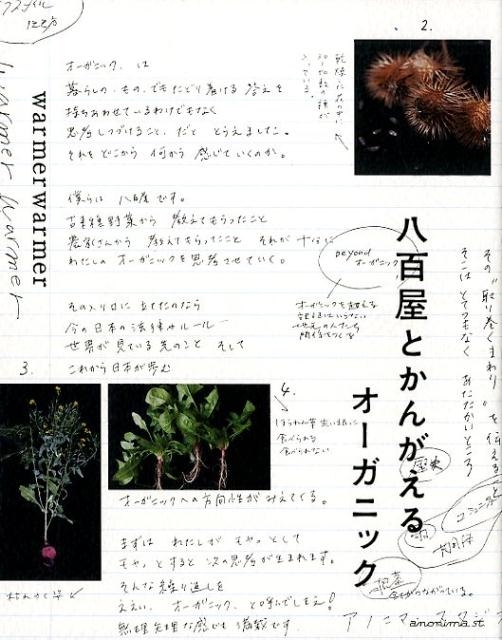 2.
オーガニック は
暮らしの、もの、でもたどり着ける 答えを
持ちあわせているわけでもなく
思考しつづけること、だと とらえました。
それを どこから 何から 感じていくのか。
僕らは 八百屋 です。
古来種野菜から 教えてもらったこと
農家さんから 教えてもらったこと それが 十分に
わたしの オーガニックを思考させていく。
その入り口に 立てたのなら
今の日本の法律やルール
世界が見ている先のこと そして
これから日本が歩む
オーガニックへの方向性がみえてくる。
まずは わたしが もやっとして
もやっとすると 次の思考が生まれます。
そんな繰り返しを
ええい、オーガニック、と呼んでしまえ!
無理矢理な感じも 満載です。
warmerwarmer
warmer warmer
八百屋とかんがえる
オーガニック
beyond
オーガニック
その"取り巻くまわり"を伝えること
そこは とてつもなく あたたかいところ
3.
4.
ほうれん草
食べられる
食べられない
共同体
アノニマ・スタジオ
anonima.st.